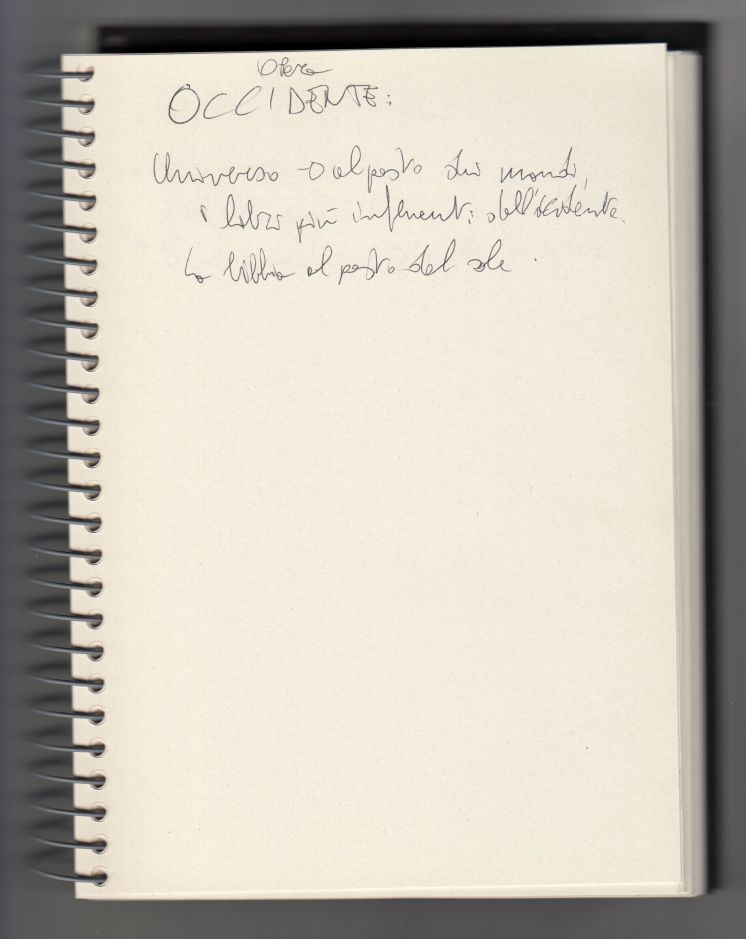 Opera
OCCIDENTE:
Universo → al posto dei mondi,
i libri più influenti dell'occidente.
La bibbia al posto del sole.